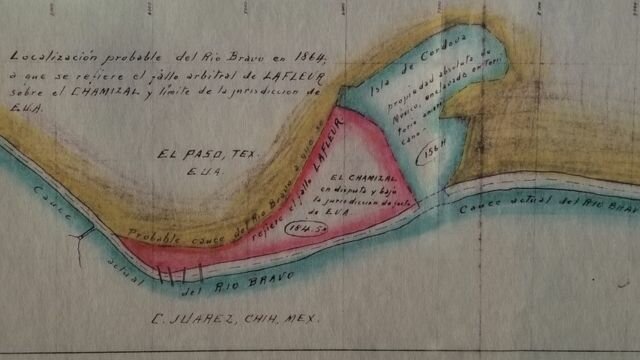 Localización probable del Rio Bravo en 1864;
a que se refiere el fallo arbitral de LAFLEUR
sobre el CHAMIZAL y limite de la jurisdiccion de
E.U.A.
Isla de Cordova
propiedad absoluta de
Mexico, enclavado en terri
torio ameri
cano -
EL PASO, TEX.
E.U.A.
Probable cauce del Rio Bravo a que se
refiere el fallo LAFLEUR
EL CHAMIZAL
en disputa y bajo
la jurisdiccion de facto
de EUA
Cauce
actual
del RIO BRAVO
Cauce actual del RIO BRAVO
C. JUAREZ, CHIH., MEX.